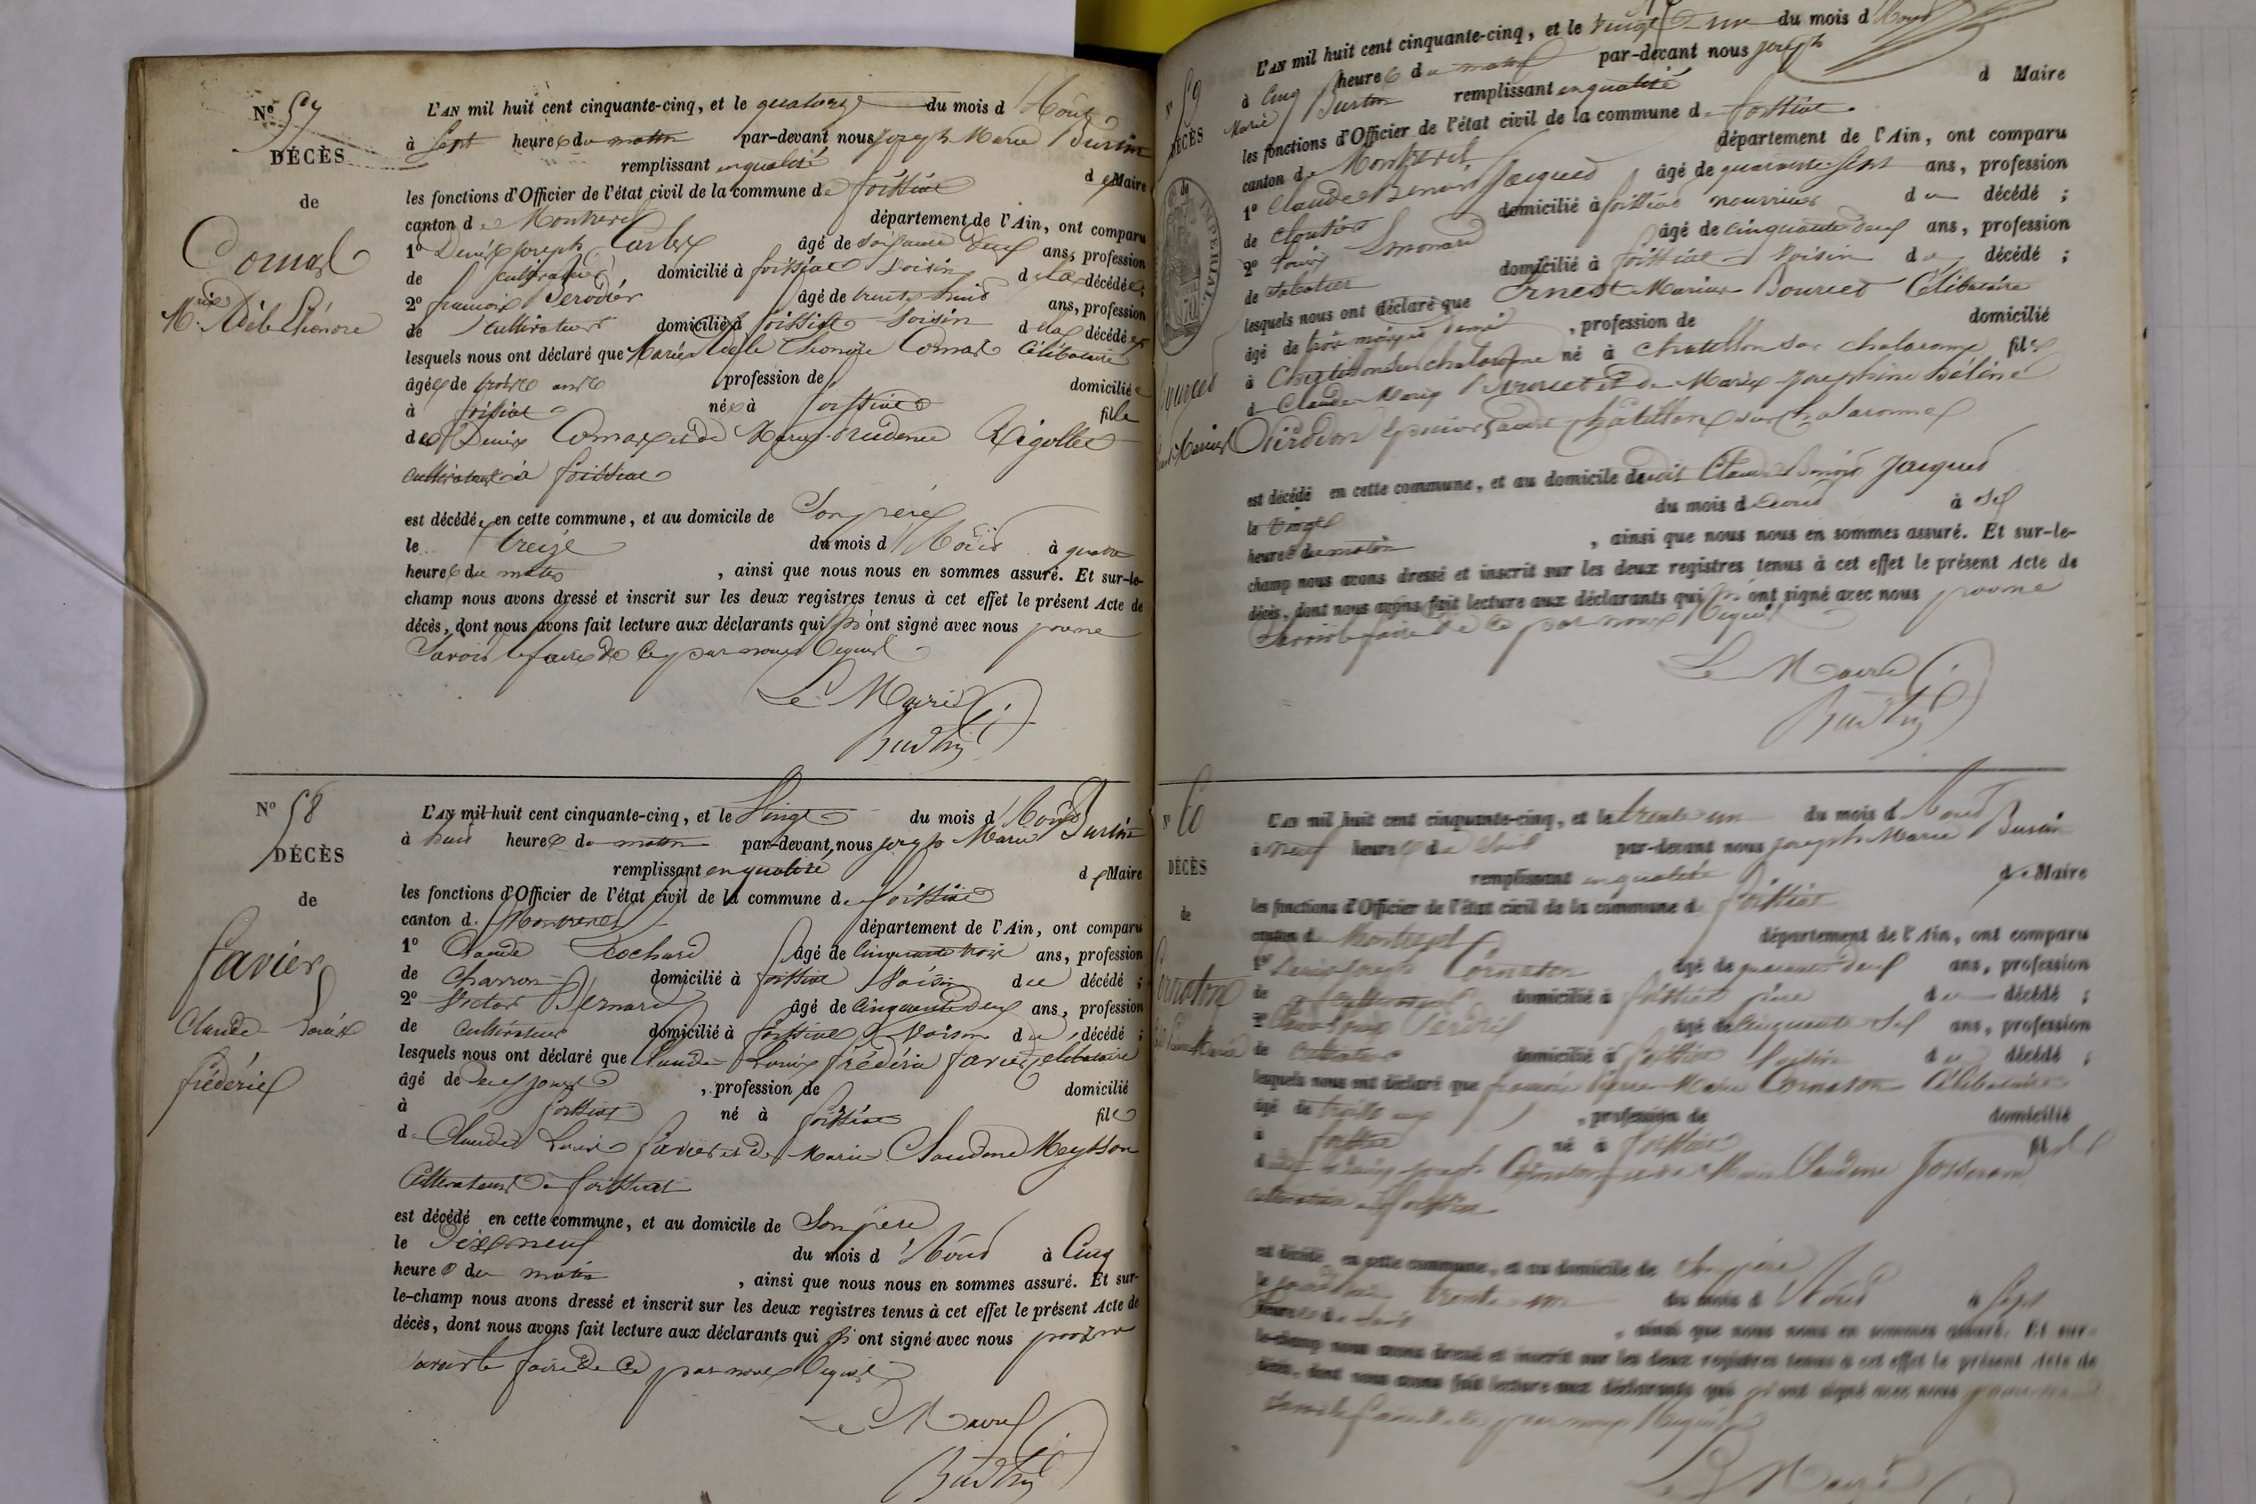 No 57
DÉCÈS
de
Comas
Mie Adèle Léonore
L'AN mil huit cent cinquante-cinq, et le quatorze du mois d'Août
à Sept heures du matin par-devant nous joseph Marie Burtin
remplissant en qualité de Maire
les fonctions d'Officier de l'état civil de la commune de foissiat
canton de Montrevel département de l'Ain, ont comparu
1o Denis joseph âgé de soixante deux ans, profession
de cultivateur, domicilié à foissiat voisin de la décédée ;
2o françois âgé de trente huit ans, profession
de cultivateur domicilié à foissiat voisin de la décédée
lesquels nous ont déclaré que Marie Adèle Comas Célibataire
âgée de trois ans profession de domiciliée
à foissiat née à foissiat fille
de Denis Comas et de Marie Prudence Rigollet
cultivateurs à foissiat
est décédée en cette commune, et au domicile de Son père
le treize du mois d'Août à quatre
heures du matin , ainsi que nous nous en sommes assuré. Et sur-le-
champ nous avons dressé et inscrit sur les deux registres tenus à cet effet le présent Acte de
décès, dont nous avons fait lecture aux déclarants qui n'ont signé avec nous pour ne
Savoir le faire de ce par nous requis
Le Maire
Burtin
No 58
DÉCÈS
de
favier
Claude Louis
frédéric
L'AN mil huit cent cinquante-cinq, et le Vingt du mois d'Août
à huit heures du matin par-devant nous joseph Marie Burtin
remplissant en qualité de Maire
les fonctions d'Officier de l'état civil de la commune de foissiat
canton de Montrevel département de l'Ain, ont comparu
1o Claude Rochard âgé de Cinquante trois ans, profession
de Charron domicilié à foissiat Voisin du décédé ;
2o Victor Bernard âgé de Cinquante deux ans, profession
de cultivateur domicilié à foissiat Voisin du décédé ;
lesquels nous ont déclaré que Claude Louis frédéric favier célibataire
âgé de deux jours , profession de domicilié
à foissiat né à foissiat fils
de Claude Louis favier et de Marie Claudine Meysson
Cultivateurs à foissiat
est décédé en cette commune, et au domicile de Son père
le Dix neuf du mois d'Août à Cinq
heures du matin , ainsi que nous nous en sommes assuré. Et sur-
le-champ nous avons dressé et inscrit sur les deux registres tenus à cet effet le présent Acte de
décès, dont nous avons fait lecture aux déclarants qui n'ont signé avec nous pour ne
savoir le faire de ce par nous requis
Le Maire
Burtin
No 59
DÉCÈS
L'AN mil huit cent cinquante-cinq, et le vingt un du mois d'Août
à Cinq heures du matin par-devant nous joseph
Marie Burtin remplissant en qualité de Maire
les fonctions d'Officier de l'état civil de la commune de foissiat
canton de Montrevel département de l'Ain, ont comparu
1o Claude Benoit Jacques âgé de quarante sept ans, profession
de cloutier domicilié à foissiat nourricier du décédé ;
2o Louis âgé de cinquante deux ans, profession
de Sabotier domicilié à foissiat Voisin du décédé ;
lesquels nous ont déclaré que Ernest Marius Bourcet Célibataire
âgé de trois mois et demi , profession de domicilié
à Chatillon sur chalaronne né à Chatillon sur chalaronne fils
de Claude Marie Bourcet et de Marie Josephine hélène
à Châtillon sur Chalaronne
est décédé en cette commune, et au domicile dudit Claude Benoit Jacques
le vingt du mois d'Août à six
heures du matin , ainsi que nous nous en sommes assuré. Et sur-le-
champ nous avons dressé et inscrit sur les deux registres tenus à cet effet le présent Acte de
décès, dont nous avons fait lecture aux déclarants qui n'ont signé avec nous pour ne
Savoir le faire de ce par nous requis
Le Maire
Burtin
No 60
DÉCÈS
de
L'AN mil huit cent cinquante-cinq, et le trente un du mois d'Août
à neuf heures du Soir par-devant nous joseph Marie Burtin
remplissant en qualité de Maire
les fonctions d'Officier de l'état civil de la commune de foissiat
canton de Montrevel département de l'Ain, ont comparu
1o Denis joseph Cornaton âgé de quarante deux ans, profession
de cultivateur domicilié à foissiat père du décédé ;
2o âgé de cinquante six ans, profession
de Cultivateur domicilié à foissiat Voisin du décédé ;
lesquels nous ont déclaré que françois Pierre Marie Cornaton Célibataire
âgé de trois ans , profession de domicilié
à foissiat né à foissiat fils
de Denis joseph Cornaton et de Marie Claudine
cultivateurs à foissiat
est décédé en cette commune, et au domicile de Son père
le trente un du mois d'Août à Sept
heures du Soir , ainsi que nous nous en sommes assuré. Et sur-
le-champ nous avons dressé et inscrit sur les deux registres tenus à cet effet le présent Acte de
décès, dont nous avons fait lecture aux déclarants qui n'ont signé avec nous pour ne
Savoir le faire de ce par nous requis
Le Maire